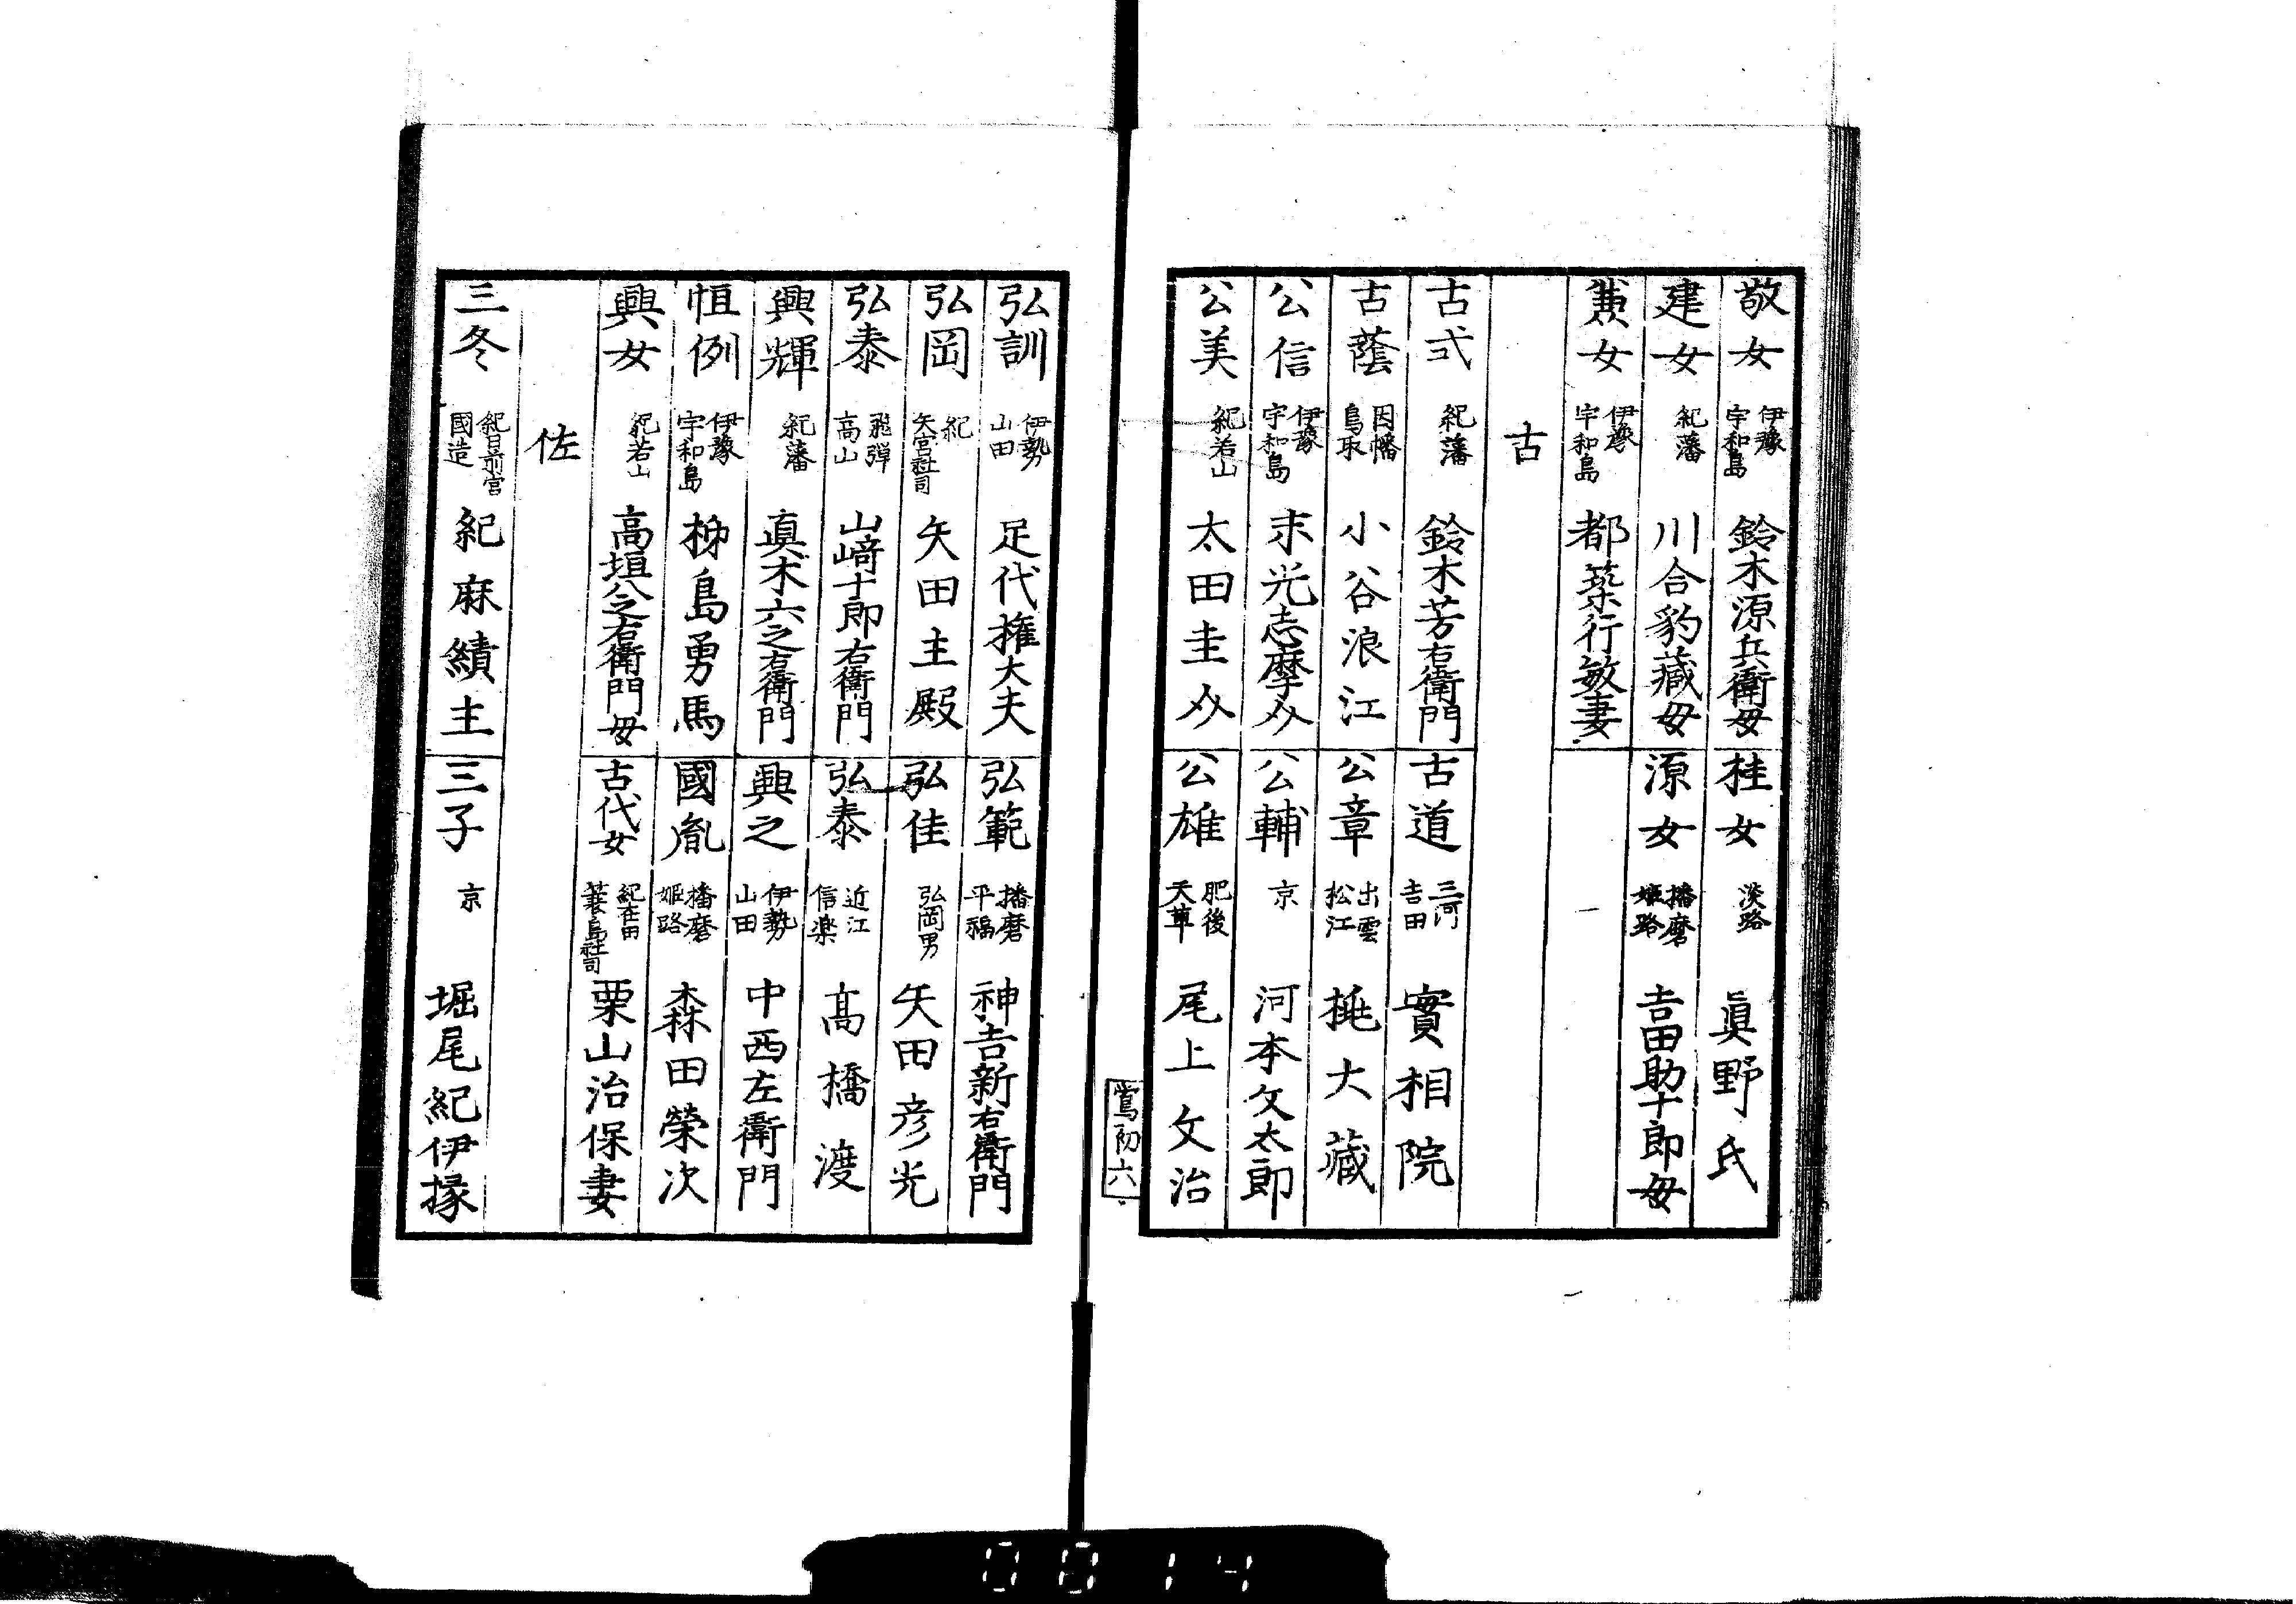 敬女 伊豫宇和島 鈴木源兵衛母
桂女 淡路 眞野氏
建女 紀藩 川合豹藏母
源女 播磨姫路 吉田助十郎母
兼女 伊豫宇和島 都築行敏妻
古
古弍 紀藩 鈴木芳右衛門
古道 三河吉田 實相院
古蔭 因幡鳥取 小谷浪江
公章 出雲松江 桃大藏
公信 伊豫宇和島 末光志摩介
公輔 京 河本文太郎
公美 紀若山 太田圭介
公雄 肥後天草 尾上文治
鴬初六
弘訓 伊勢山田 足代権大夫
弘範 播磨平福 神吉新右衛門
弘岡 紀矢宮社司 矢田主殿
弘佳 弘岡男 矢田彦光
弘泰 飛彈高山 山﨑十郎右衛門
弘泰 近江信楽 高橋渡
興輝 紀藩 真木六之右衛門
興之 伊勢山田 中西左衛門
恒例 伊豫宇和島 梯島勇馬
國胤 播磨姫路 森田榮次
興女 紀若山 高垣八之右衛門母
古代女 紀在田蓑島社司 栗山治保妻
佐
三冬 紀日前宮國造 紀麻績主
三子 京 堀尾紀伊掾
0014